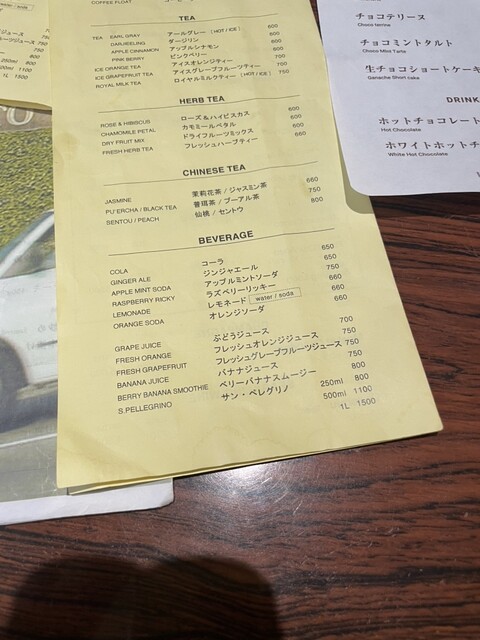 COFFEE FLOAT
TEA
TEA EARL GRAY アールグレー (HOT / ICE) 600
DARJEELING ダージリン 600
APPLE CINNAMON アップルシナモン 800
PINK BERRY ピンクベリー 800
ICE ORANGE TEA アイスオレンジティー 700
ICE GRAPEFRUIT TEA アイスグレープフルーツティー 700
ROYAL MILK TEA ロイヤルミルクティー (HOT / ICE) 750
HERB TEA
ROSE & HIBISCUS ローズ&ハイビスカス 600
CHAMOMILE PETAL カモミールペタル 600
DRY FRUIT MIX ドライフルーツミックス 600
FRESH HERB TEA フレッシュハーブティー 660
CHINESE TEA
JASMINE 茉莉花茶 / ジャスミン茶 660
PU'ERCHA / BLACK TEA 普茸茶 / プーアル茶 750
SENTOU / PEACH 仙桃 / セントウ 800
BEVERAGE
COLA コーラ 650
GINGER ALE ジンジャエール 650
APPLE MINT SODA アップルミントソーダ 750
RASPBERRY RICKY ラズベリーリッキー 660
LEMONADE レモネード water / soda 660
ORANGE SODA オレンジソーダ 660
GRAPE JUICE ぶどうジュース 700
FRESH ORANGE フレッシュオレンジジュース 750
FRESH GRAPEFRUIT フレッシュグレープフルーツジュース 750
BANANA JUICE バナナジュース 750
BERRY BANANA SMOOTHIE ベリーバナナスムージー 800
S.PELLEGRINO サン・ペレグリノ 250ml 800
500ml 1100
1L 1500
water / soda
ジュース 750
800
250ml 800
500ml 1100
1L 1500
チョコテリーヌ
Choco terrine
チョコミントタルト
Choco Mint Tarte
生チョコショートケーキ
Ganache Short cake
DRINK
ホットチョコレート
Hot Chocolate
ホワイトホットチ
White Hot Chocolate